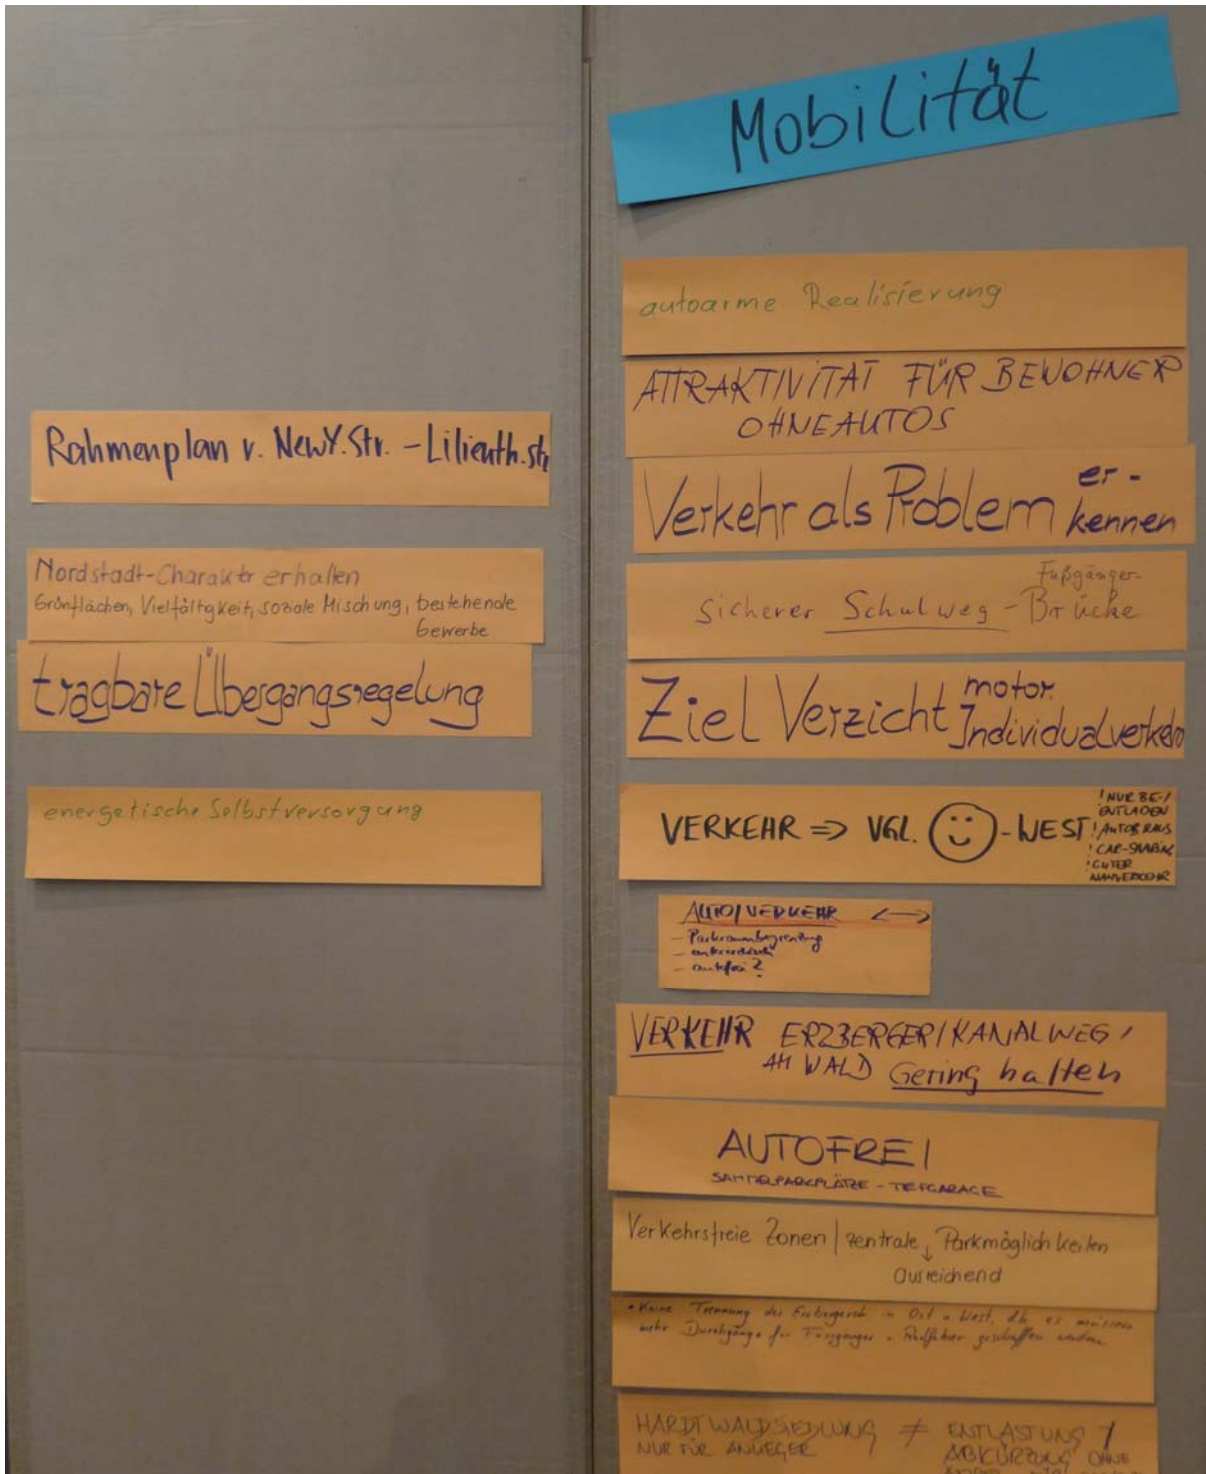 Rahmenplan v. NewY.Str. - Lilienth.str
Nordstadt-Charakter erhalten
Grünflächen, Vielfältigkeit, soziale Mischung, bestehende
Gewerbe
tragbare Übergangsregelung
energetische Selbstversorgung
Mobilität
autoarme Realisierung
ATTRAKTIVITÄT FÜR BEWOHNER
OHNE AUTOS
Verkehr als Problem er-
kennen
Fußgänger-
sicherer Schulweg - Brücke
Ziel Verzicht motor.
Individualverkehr
VERKEHR => VGL. ☺-WEST
! NUR BE-/
ENTLADEN
! AUTOS RAUS
! CAR-SHARING
! GUTER
NAHVERKEHR
AUTO/VERKEHR <-->
- Parkraumbegrenzung
- autofrei?
VERKEHR ERZBERGER/KANALWEG/
AM WALD Gering halten
AUTOFREI
SAMMELPARKPLÄTZE - TIEFGARAGE
Verkehrsfreie Zonen | zentrale ↓ Parkmöglichkeiten
ausreichend
• Keine Trennung der Erzbergerstr. in Ost u. West, d.h. es müssen
mehr Durchgänge für Fussgänger u. Radfahrer geschaffen werden
HARDTWALDSIEDLUNG ≠ ENTLASTUNG /
NUR FÜR ANLIEGER ABKÜRZUNG OHNE